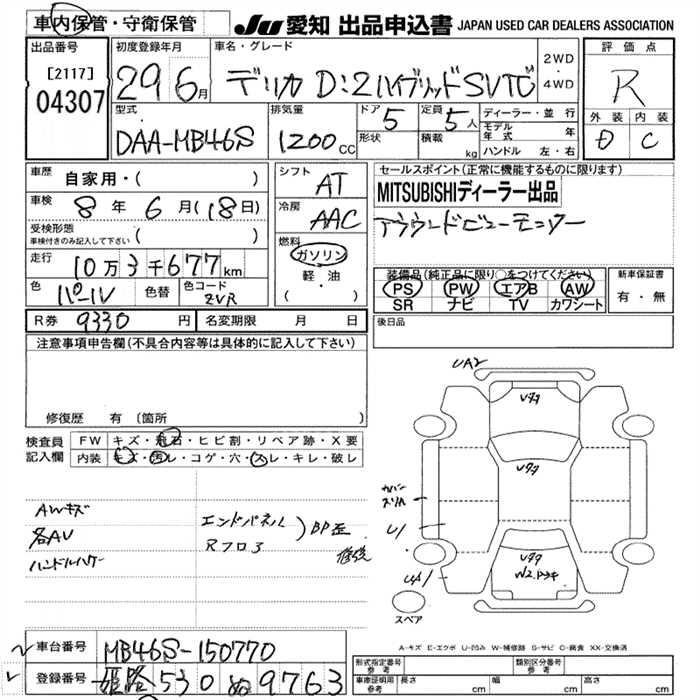 車内保管・守衛保管
JU 愛知 出品申込書 JAPAN USED CAR DEALERS ASSOCIATION
出品番号
[2117]
04307
初度登録年月
29 6月
車名・グレード
デリカ D:2 ハイブリッドSVTC
2WD
・
4WD
評価点
R
外装 内装
D C
型式
DAA-MB46S
排気量
1200 CC
ドア 5
形状
定員 5人
積載 kg
ディーラー・並行
モデル年式 年
ハンドル 左・右
車歴 自家用・( )
車検 8年 6月(18日)
受検形態
車検付きのみ記入して下さい ( )
走行 10万3千677km
色 パール 色替 色コード ZVR
シフト AT
冷房 AAC
燃料
ガソリン
軽・油
( )
セールスポイント(正常に機能するものに限ります)
MITSUBISHIディーラー出品
アラウンドビューモニター
装備品(純正品に限り○をつけてください)
PS PW エアB AW
SR ナビ TV カワシート
新車保証書
有・無
R券 9330円 名変期限 月 日
後日品
注意事項申告欄(不具合内容等は具体的に記入して下さい)
修復歴 有 〔箇所
検査員記入欄
FW キズ・飛石・ヒビ割・リペア跡・X要
内装 キズ・汚レ・コゲ・穴・スレ・キレ・破レ
AWキズ
各AU
ハンドルハゲ
エンドパネル
Rフロア
BP歪
修後
UA2
Uタタ
Uタタ
カバースリA
U1
UA1
Uタタ
W2
スペア
A-キズ E-エクボ U-凹み W-補修跡 S-サビ C-腐食 XX-交換済
車台番号 MB46S-150770
登録番号 姫路 530 ぬ 9763
形式指定番号 参考
類別区分番号 参考
車庫証明用 参考 長さ cm 幅 cm 高さ cm